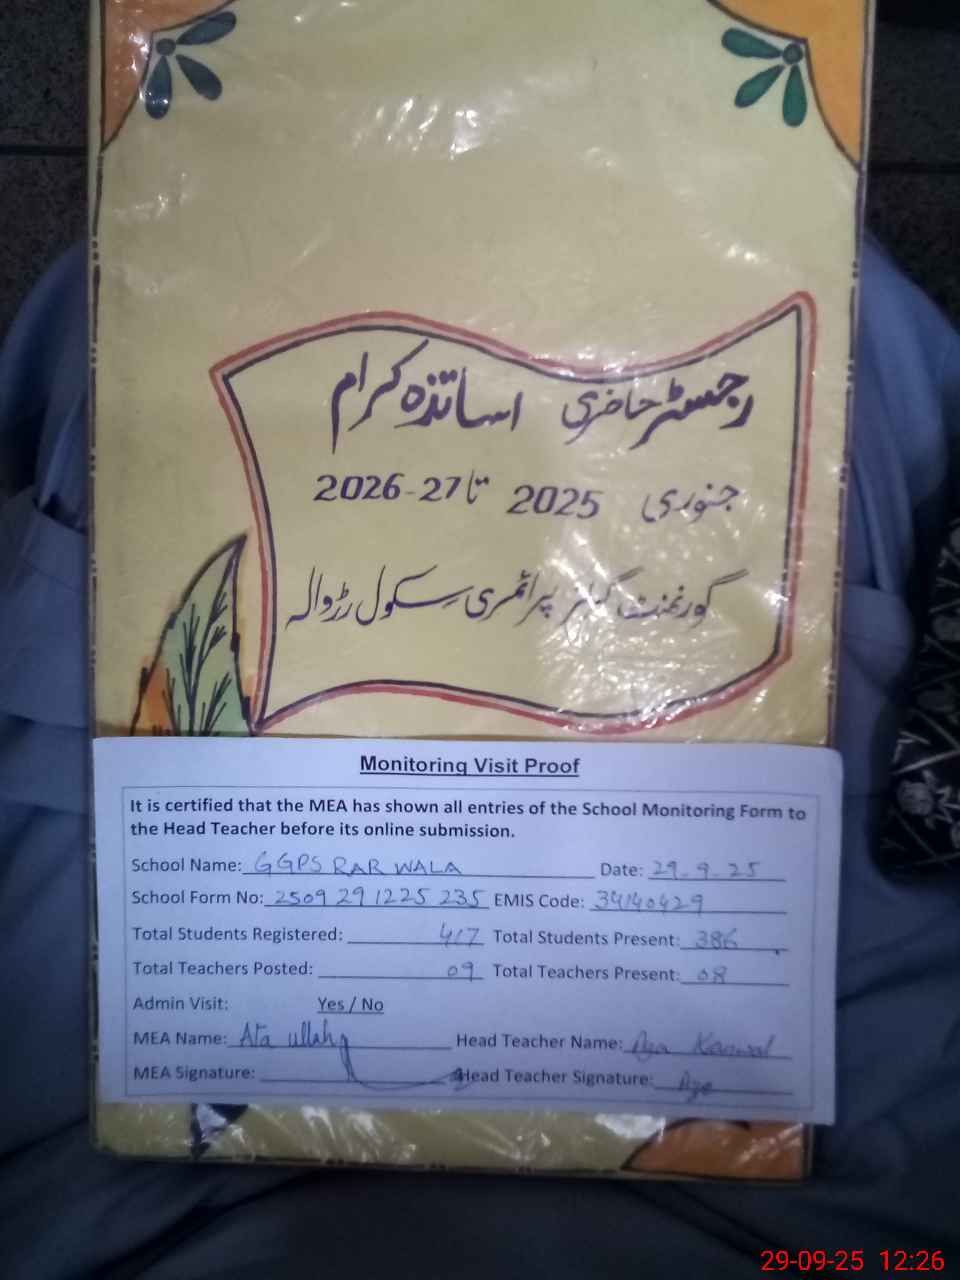 رجسٹر حاضری اساتذہ کرام
جنوری 2025 تا 27-2026
گورنمنٹ گرلز پرائمری سکول رڑوالہ
Monitoring Visit Proof
It is certified that the MEA has shown all entries of the School Monitoring Form to
the Head Teacher before its online submission.
School Name: GGPS RAR WALA Date: 29-9-25
School Form No: 2509 29 1225 235 EMIS Code: 34140429
Total Students Registered: 417 Total Students Present: 386
Total Teachers Posted: 09 Total Teachers Present: 08
Admin Visit: Yes / No
MEA Name: Ata ullah Head Teacher Name: Kanwal
MEA Signature: Head Teacher Signature:
29-09-25 12:26